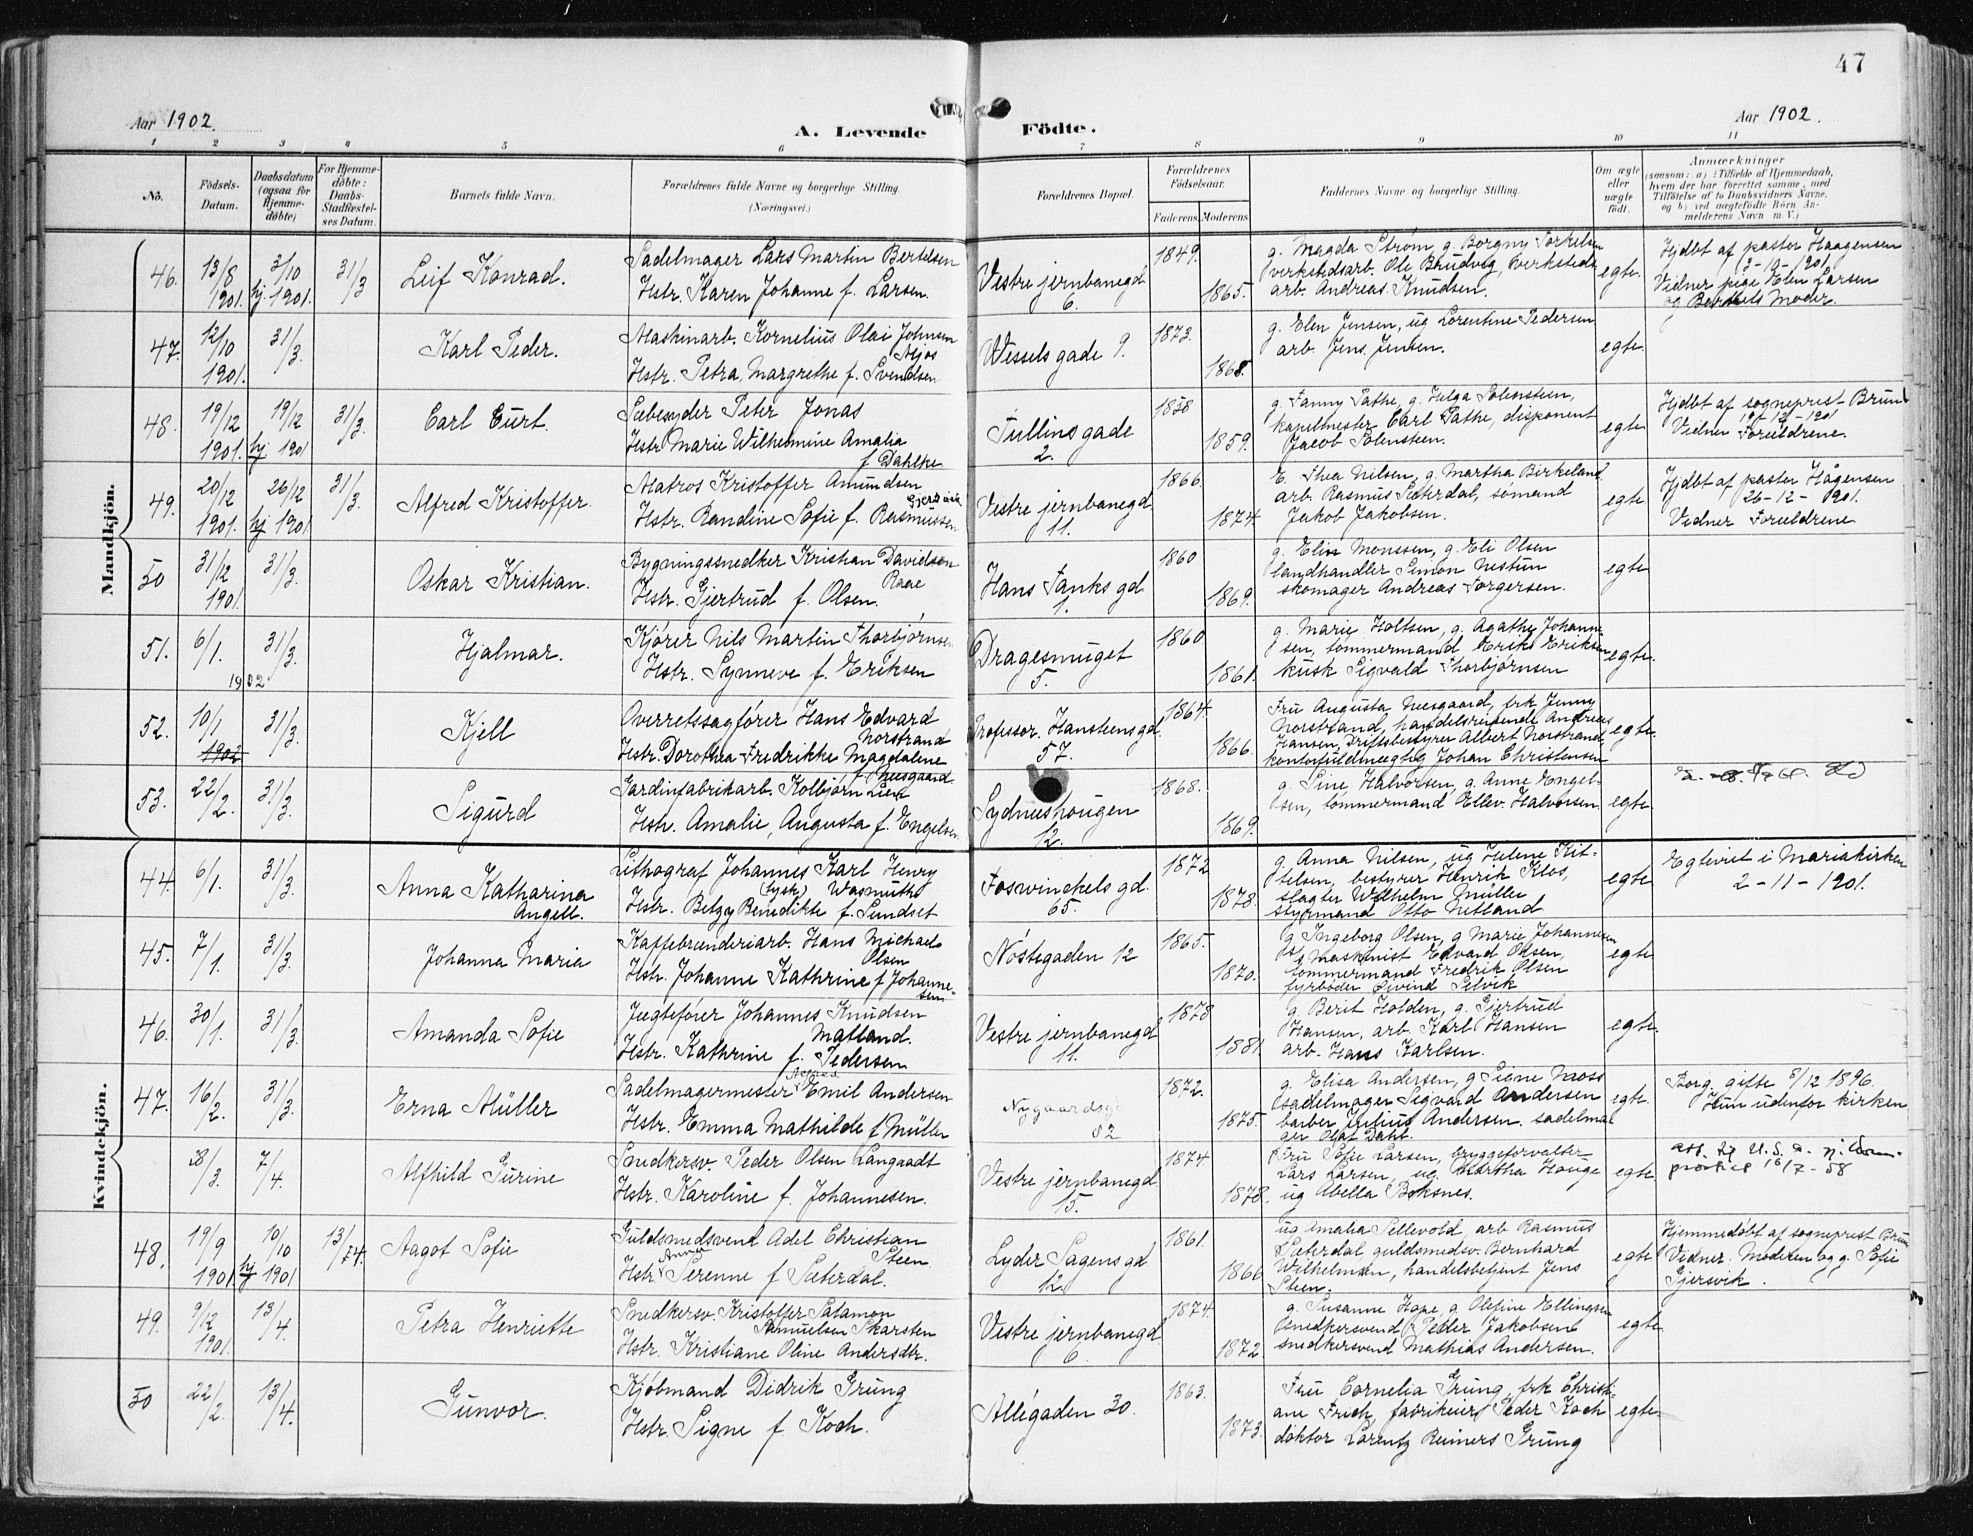 47
Aar 1902.
A. Levende Födte.
Aar 1902.
1 2 3 4 5 6 7 8 9 10 11
No.
Födsels-Datum.
Daabsdatum (ogsaa for Hjemme-döbte)
For Hjemme-döbte: Daabs-Stadfæstel-ses Datum.
Barnets fulde Navn.
Forældrenes fulde Navne og borgerlige Stilling. (Næringsvei.)
Forældrenes Bopæl.
Forældrenes Födselsaar.
Faderens. Moderens.
Faddernes Navne og borgerlige Stilling.
Om ægte eller uægte födt.
Anmærkninger
(saasom: a) i Tilfælde af Hjemmedaab,
hvem der har forrettet samme, med
Tilföielse af to Daabsvidners Navne,
og b) ved uægtefödte Börn An-
melderens Navn m. V.)
Mandkjön.
46. 13/8 1901. 3/10 hj. 1901. 31/3 Leif Konrad.
Sadelmager Lars Martin Bertelsen
Hstr. Karen Johanne f. Larsen.
Vestre jernbanegd 6.
1849. 1865.
g. Magda Strøm, g. Borgny Torkelsen
verkstedsarb. Ole Brudvig, verksteds
arb. Andreas Knudsen.
egte.
Hjdbt af pastor Haagensen
3-10-1901.
Vidner pige Elen Larsen
og Barnets Moder.
47. 12/10 1901. 31/3. Karl Peder.
Maskinarb. Kornelius Olai Johnsen
Hstr. Petra Margrethe f. Svendsen
Wessels gade 9.
1873. 1868.
g. Elen Jensen, ug Lorentine Pedersen
arb. Jens Jensen.
egte.
48. 19/12 1901. 19/12 hj 1901 31/3. Carl Curt.
Sæbesyder Peter Jonas
Hstr. Marie Wilhelmine Amalia
f. Dahlke
Tullins gade 2.
1858 1859.
g. Fanny Pathe, g. Helga Solensteen,
kapelmester Carl Pathe, disponent
Jacob Solensteen.
egte
Hjdbt af sogneprest Bruun
19/12-1901
Vidner Forældrene.
49. 20/12 1901. 26/12 hj 1901 31/3. Alfred Kristoffer.
Matros Kristoffer Amundsen
Hstr. Randine Sofie f. Rasmussen
Vestre jernbanegd. 11.
1866. 1874.
E. Thea Nilsen, g. Martha Birkeland
arb Rasmus Sæterdal, sømand
Jakob Jakobsen.
egte
Hjdbt af pastor Hågensen
26-12-1901.
Vidner Forældrene
50 31/12 1901. 31/3. Oskar Kristian.
Bygningssnedker Kristian Davidsen
Raae
Hstr. Gjertrud f. Olsen.
Hans Tanks gd 1.
1860 1869.
g. Elin Monssen, g. Eli Olsen
landhandler Simon Nestun
skomager Andreas Torgersen.
egte
51. 6/1. 1902 31/3. Hjalmar.
Kjører Nils Martin Thorbjørnsen
Hstr. Synneve f. Eriksen
Dragesmuget 5.
1860 1861.
g. Marie Holtsen, g. Agathe Johanne-
sen, tømmermand Erik Eriksen
kusk Sigvald Thorbjørnsen
egte.
52. 10/1 1902 31/3. Kjell
Overretssagfører Hans Edvard
Norstrand
Hstr. Dorothea Fredrikke Magdalene
f. Neesgaard
Professor Hansteens gd. 57.
1864. 1866.
Fru Augusta Neesgaard, frk Jenny
Norstrand, handelsreisende Andreas
Hansen, Driftsbestyrer Albert Norstrand,
kontorfuldmægtig Johan Christensen
egte.
53. 22/2. 31/3. Sigurd
Gardinfabrikarb. Kolbjørn Lien
Hstr. Amalie Augusta f. Engelsen
Sydneshougen 12.
1868. 1869.
g. Sine Halvorsen, g. Anne Engel-
sen, tømmermand Ellev. Halvorsen
egte.
Kvindekjön.
44. 6/1. 31/3. Anna Katharina Angell.
Lithograf Johannes Karl Henry
(tysk) Wasmuth
Hstr. Betzy Benedikte f. Sundset
Foswinckels gd. 65.
1872 1878.
g. Anna Nilsen, ug Helene Kit-
telsen, bestyrer Henrik Klos,
slagter Wilhelm Müller
styrmand Otto Netland
egte
Egteviet i Mariakirken
2-11-1901.
45. 7/1. 31/3. Johanna Maria
Kaffebrænderiarb. Hans Michael
Olsen
Hstr. Johanne Kathrine f Johanne-
sen
Nøstegaden 12
1865. 1870.
g Ingeborg Olsen, g Marie Johannesen
Maskinist Edvard Olsen,
tømmermand Fredrik Olsen
fyrbøder Eivind Selvik
egte
46. 30/1. 31/3. Amanda Sofie
Jægtefører Johannes Knudsen
Matland.
Hstr. Kathrine f. Pedersen
Vestre jernbanegd 11.
1878 1881
g. Berit Holden, g. Gjertrud
Hansen, arb. Karl Hansen
arb. Hans Karlsen.
egte.
47. 16/2. 31/3. Erna Müller
Sadelmagermester Alfred Emil Andersen
Hstr. Emma Mathilde f Müller
Nygaardsg. 52
1872. 1875.
g. Elisa Andersen, g Signe Moss
sadelmager Sigvard Andersen
barber Julius Andersen. sadelma-
ger Olaf Dahl.
egte.
Borg. gifte 8/12 1896.
Hun udenfor kirken
28/3. 7/4. Alfhild Gurine
Snedkersv. Peder Olsen Langaadt
Hstr. Karoline f. Johannesen.
Vestre jernbanegd 15.
1874. 1878.
Fru Sofie Larsen, bryggeforvalter
Lars Larsen, ug. Martha Hauge
ug Abella Boksnes.
egte
48. 19/9 1901. 10/10 hj 1901 13/4. Aagot Sofie
Guldsmedsvend Adel Christian
Steen
Hstr Anna Serenne f Sæterdal.
Lyder Sagens gd 12
1861. 1866
ug Amalia Sellevold, arb Rasmus
Sæterdal guldsmedsv. Bernhard
Wilhelmsen, handelsbetjent Jens
Steen.
egte
Hjemmedøbt af sogneprest Bruun
Vidner: Moderen og g. Sofie
Gjersvik.
49. 9/12 1901. 13/4. Petra Henriette
Snedkersv. Kristoffer Salamon
Samuelsen Skarsten
Hstr. Kristiane Oline Andersdtr.
Vestre jernbanegd 6
1874. 1872.
g. Susanne Hope, g Olefine Ellingsen
snedkersvend Peder Jakobsen
snedkersvend Mathias Andersen.
egte.
50 22/2. 13/4. Gunvor.
Kjøbmand Didrik Grung
Hstr. Signe f. Koch.
Allégaden 30.
1863. 1873.
Fru Cornelia Grung, frk Christi-
ane Frich, fabrikeier Peder Koch
doktor Lorentz Reimers Grung
egte.